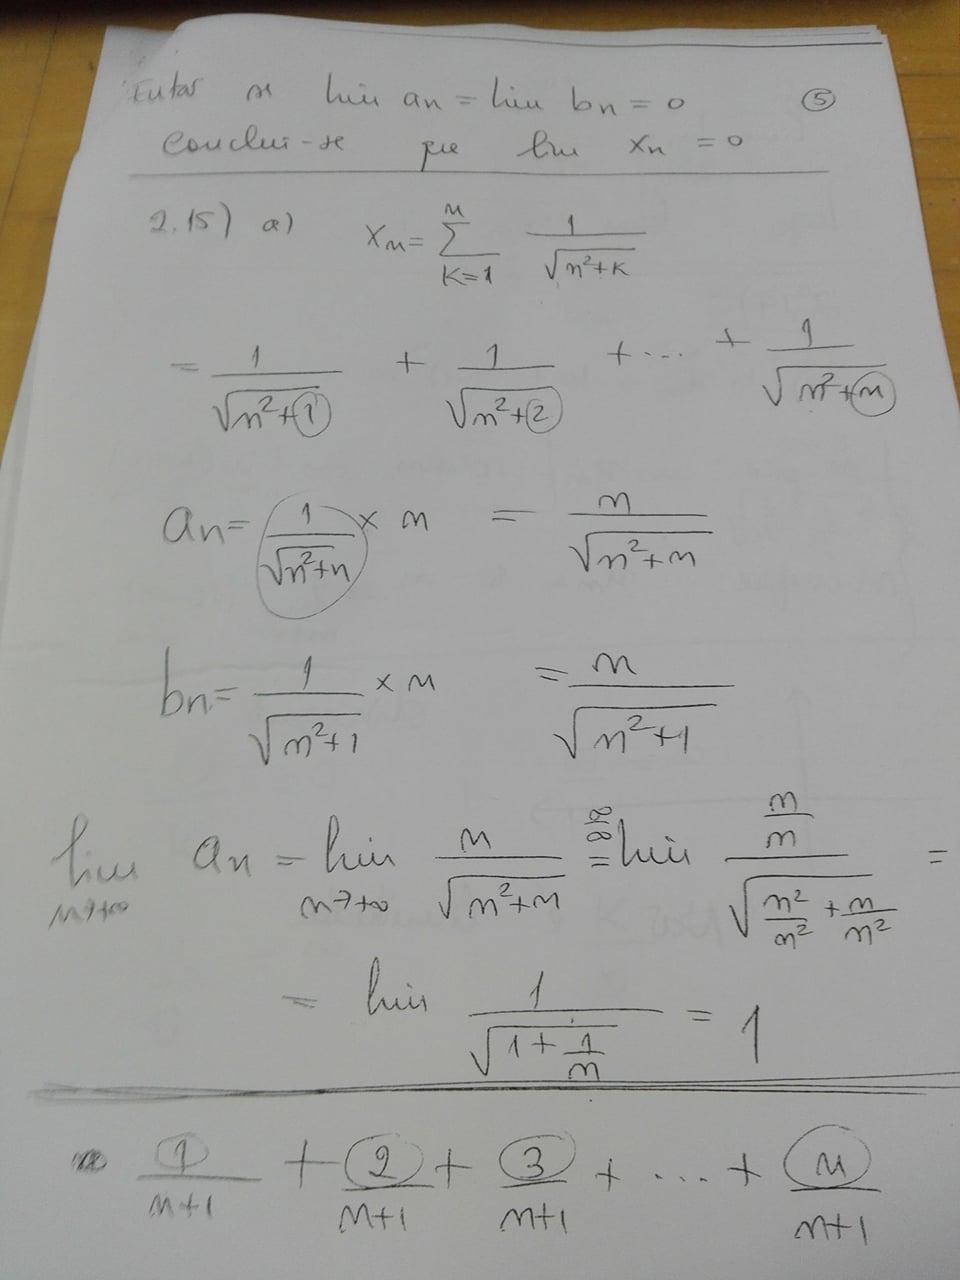 Então se lim an = lim bn = 0 ⑤
Conclui-se que lim xn = 0
2.15) a) xn = ∑_{K=1}^{n} 1/√(n²+k)
= 1/√(n²+①) + 1/√(n²+②) + ... + 1/√(n²+ⓝ)
an = 1/√(n²+n) × n = n/√(n²+n)
bn = 1/√(n²+1) × n = n/√(n²+1)
lim_{n→+∞} an = lim_{n→+∞} n/√(n²+n) =^{∞/∞} lim (n/n)/√(n²/n² + n/n²) =
= lim 1/√(1 + 1/n) = 1
①/(n+1) + ②/(n+1) + ③/(n+1) + ... + ⓝ/(n+1)